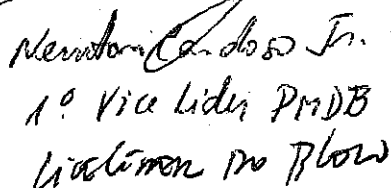 Newton Cardoso Jr.
1º Vice Lider PMDB
do Bloco